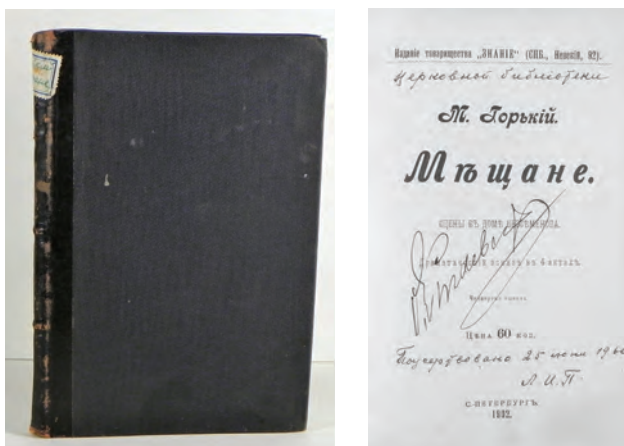 Изданіе товарищества „ЗНАНІЕ“ (СПБ., Невскій, 92).
Церковной библіотеки
М. Горькій.
Мѣщане.
СЦЕНЫ ВЪ ДОМѢ БЕЗСѢМЕНОВА.
Драматическій эскизъ въ 4 актахъ.
Цѣна 60 коп.
Пожертвовано 25
Л. И. П.
С.-ПЕТЕРБУРГЪ.
1902.